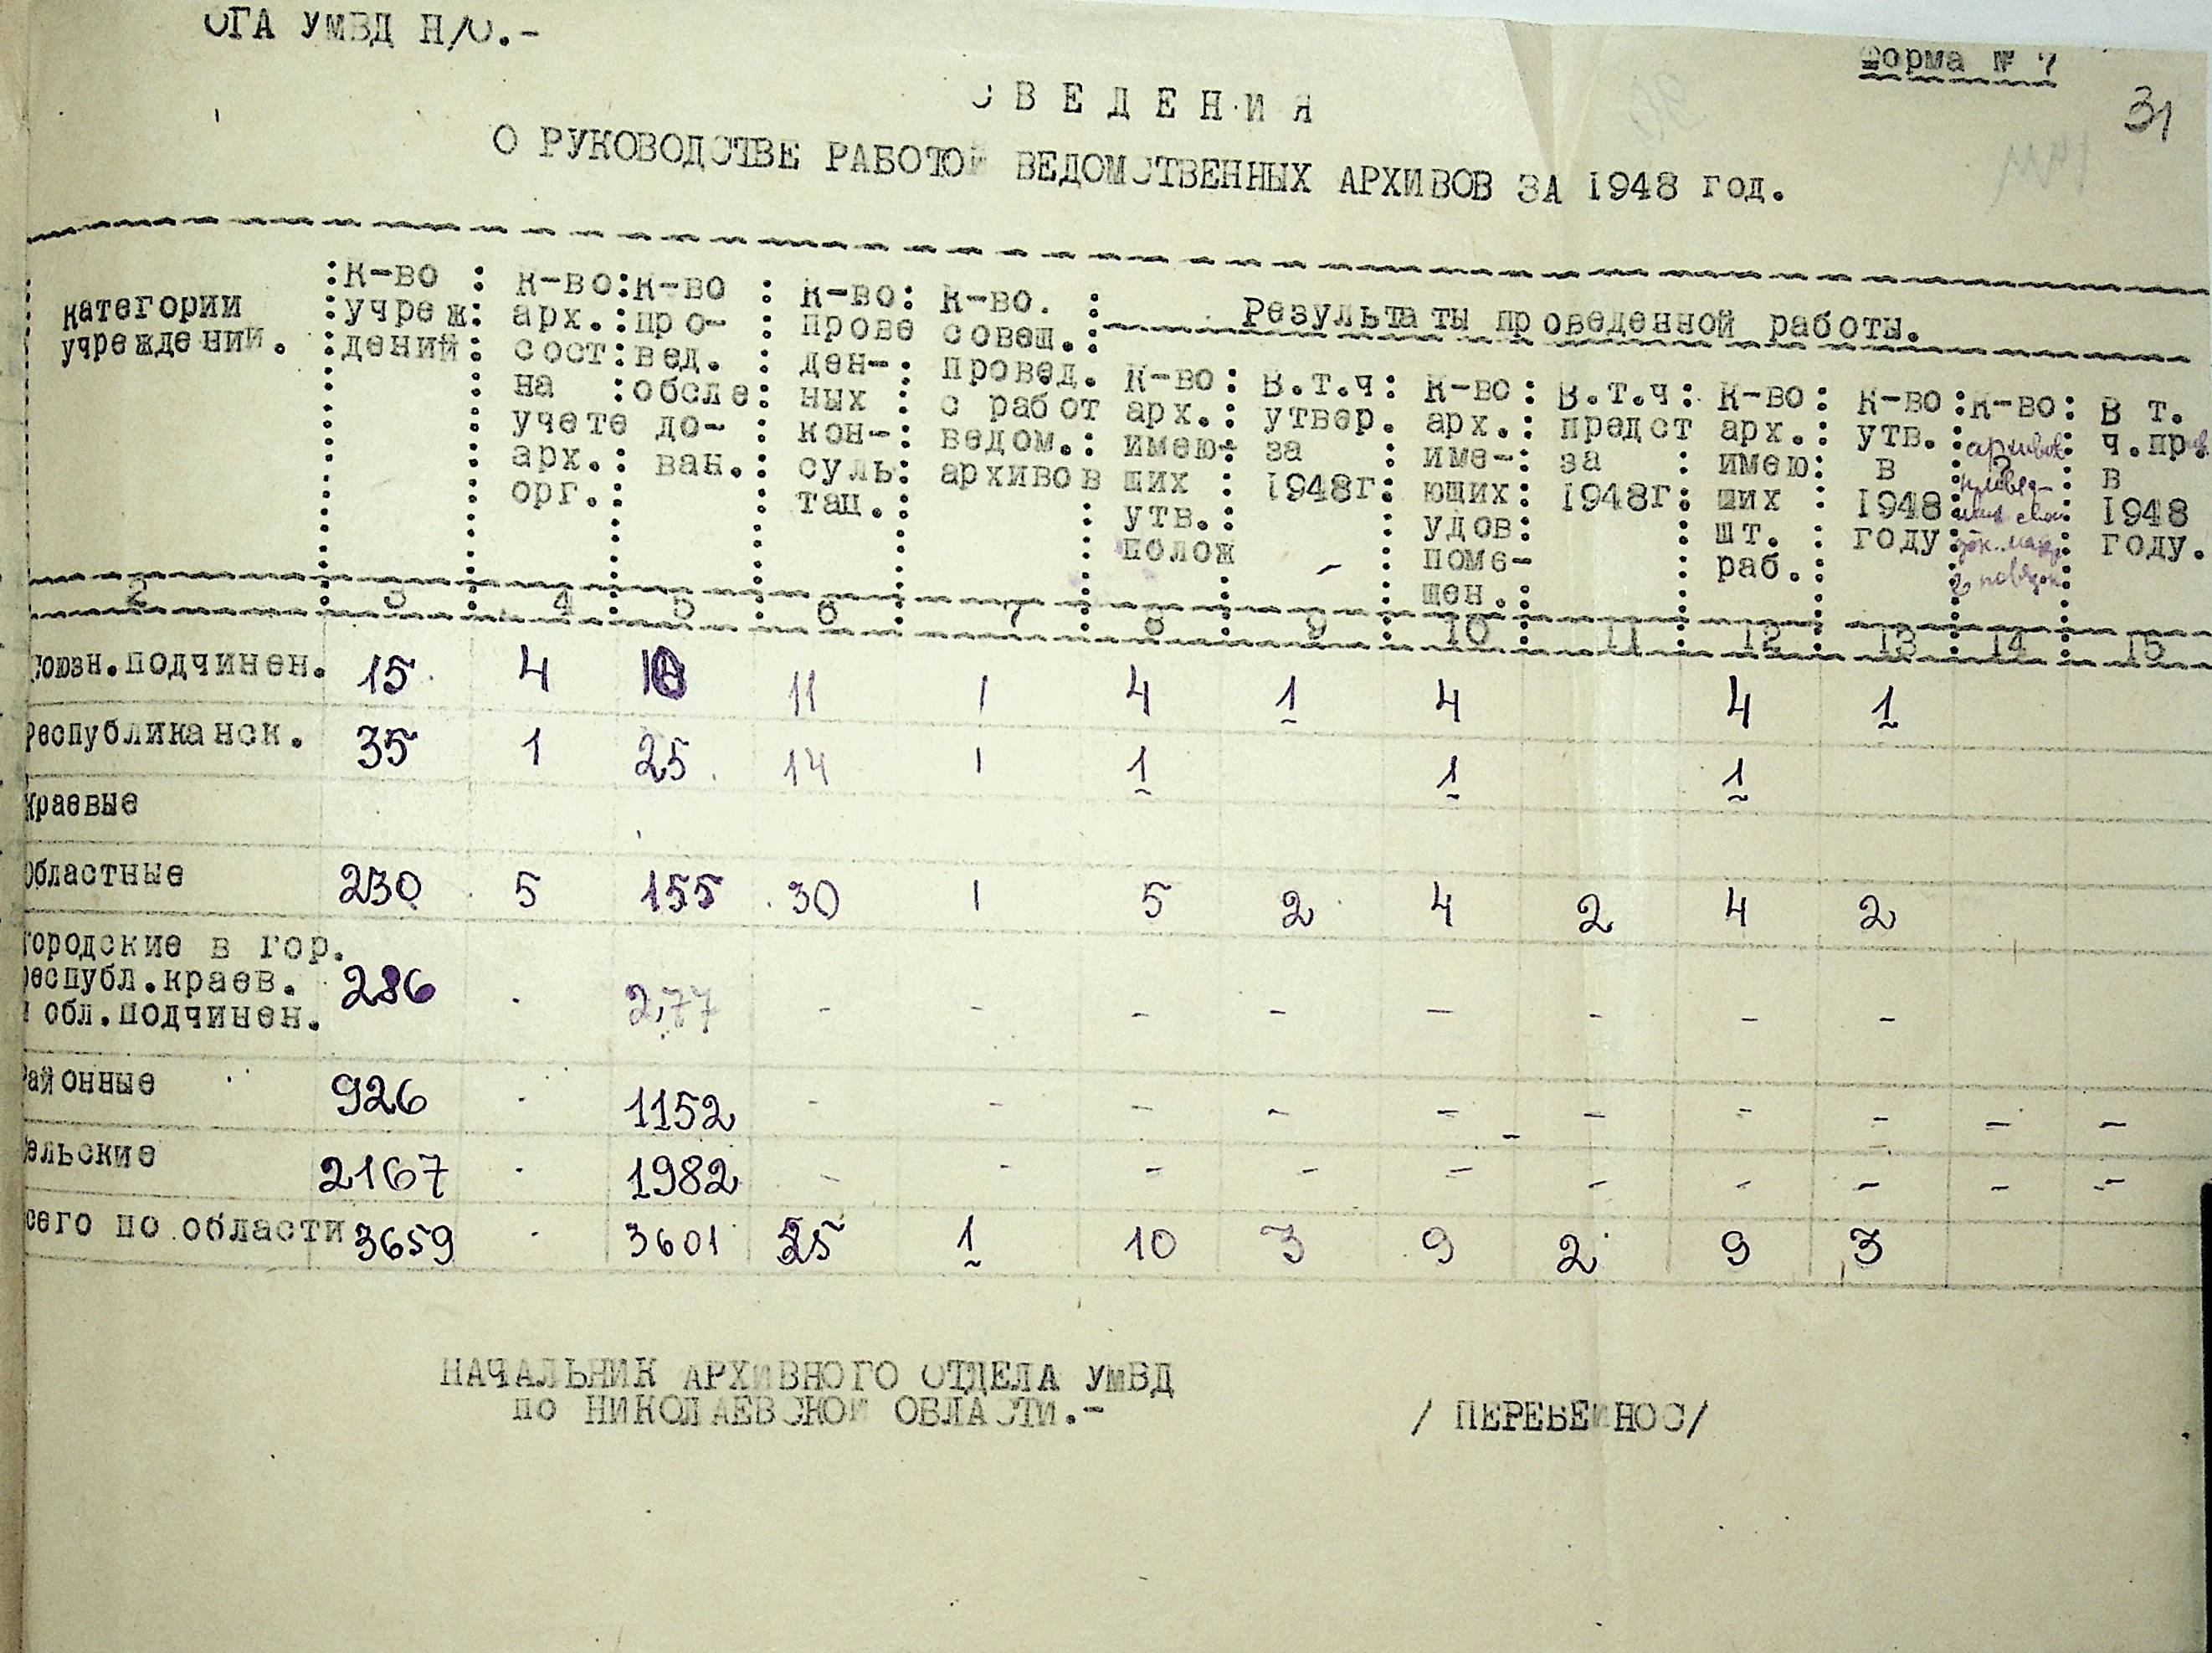 ОГА УМВД Н/О.-
Форма № 7
31
СВЕДЕНИЯ
О РУКОВОДСТВЕ РАБОТОЙ ВЕДОМСТВЕННЫХ АРХИВОВ ЗА 1948 год.
категории учреждений.
К-во учреж дений
К-во арх. сост на учете арх. орг.
К-во про- вед. обсле до- ван.
К-во прове ден- ных кон- суль тац.
К-во. совещ. провед. с работ ведом. архивов
Результаты проведенной работы.
К-во арх. имею- щих утв. полож
В.т.ч утвер. за 1948г
К-во арх. име- ющих удов поме- щен.
В.т.ч предст за 1948г
К-во арх. имею щих шт. раб.
К-во утв. в 1948 году
К-во архивов
В т. ч. прив в 1948 году.
2 3 4 5 6 7 8 9 10 11 12 13 14 15
Союзн.подчинен. 15 4 10 11 1 4 1 4 4 1
Республиканск. 35 1 25 14 1 1 1 1
Краевые
Областные 230 5 155 30 1 5 2 4 2 4 2
городские в гор.
республ.краев.
и обл.подчинен. 286 277 - - - - - - - -
Районные 926 1152 - - - - - - - - - -
Сельские 2167 1982 - - - - - - - - - -
Всего по области 3659 - 3601 25 1 10 3 9 2 9 3
НАЧАЛЬНИК АРХИВНОГО ОТДЕЛА УМВД
по НИКОЛАЕВСКОЙ ОБЛАСТИ.-
/ ПЕРЕБЕЙНОС/